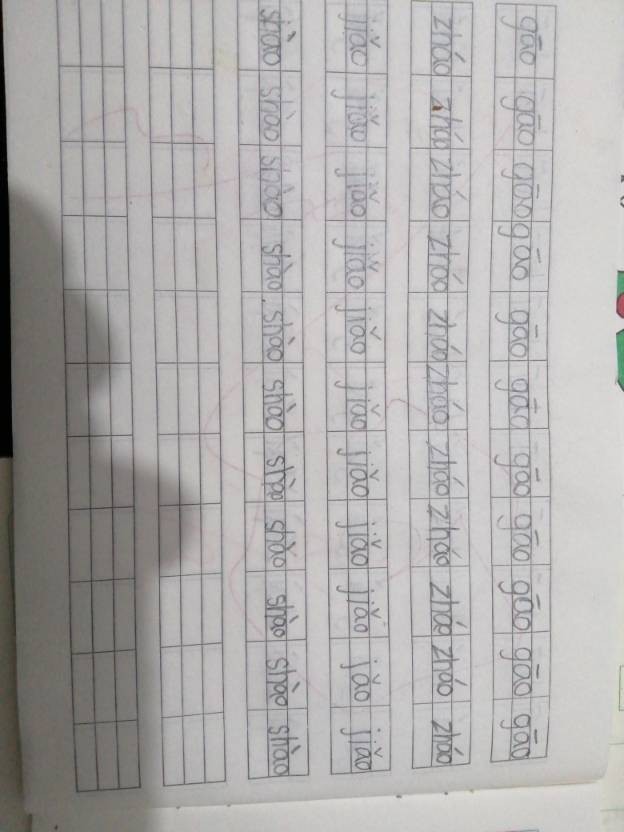 gāo gāo gāo gāo gāo gāo gāo gāo gāo gāo gāo
zháo zháo zháo zháo zháo zháo zháo zháo zháo zháo zháo
jiǎo jiǎo jiǎo jiǎo jiǎo jiǎo jiǎo jiǎo jiǎo jǎo jiǎo
shào shào shào shào shào shào shào shào shào shào shào